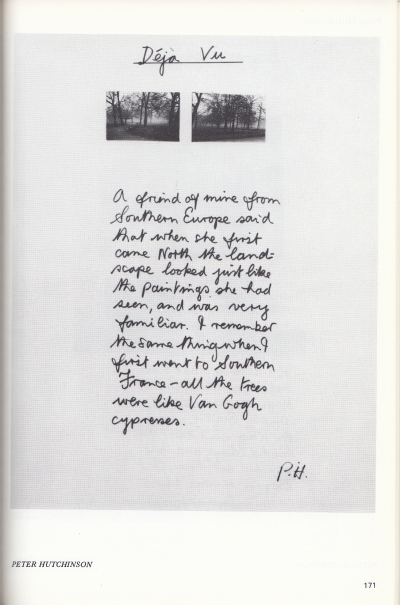 Déjà Vu
A friend of mine from
Southern Europe said
that when she first
came North the land=
scape looked just like
the paintings she had
seen, and was very
familiar. I remember
the same thing when I
first went to Southern
France – all the trees
were like Van Gogh
cypresses.
P.H.
PETER HUTCHINSON
171